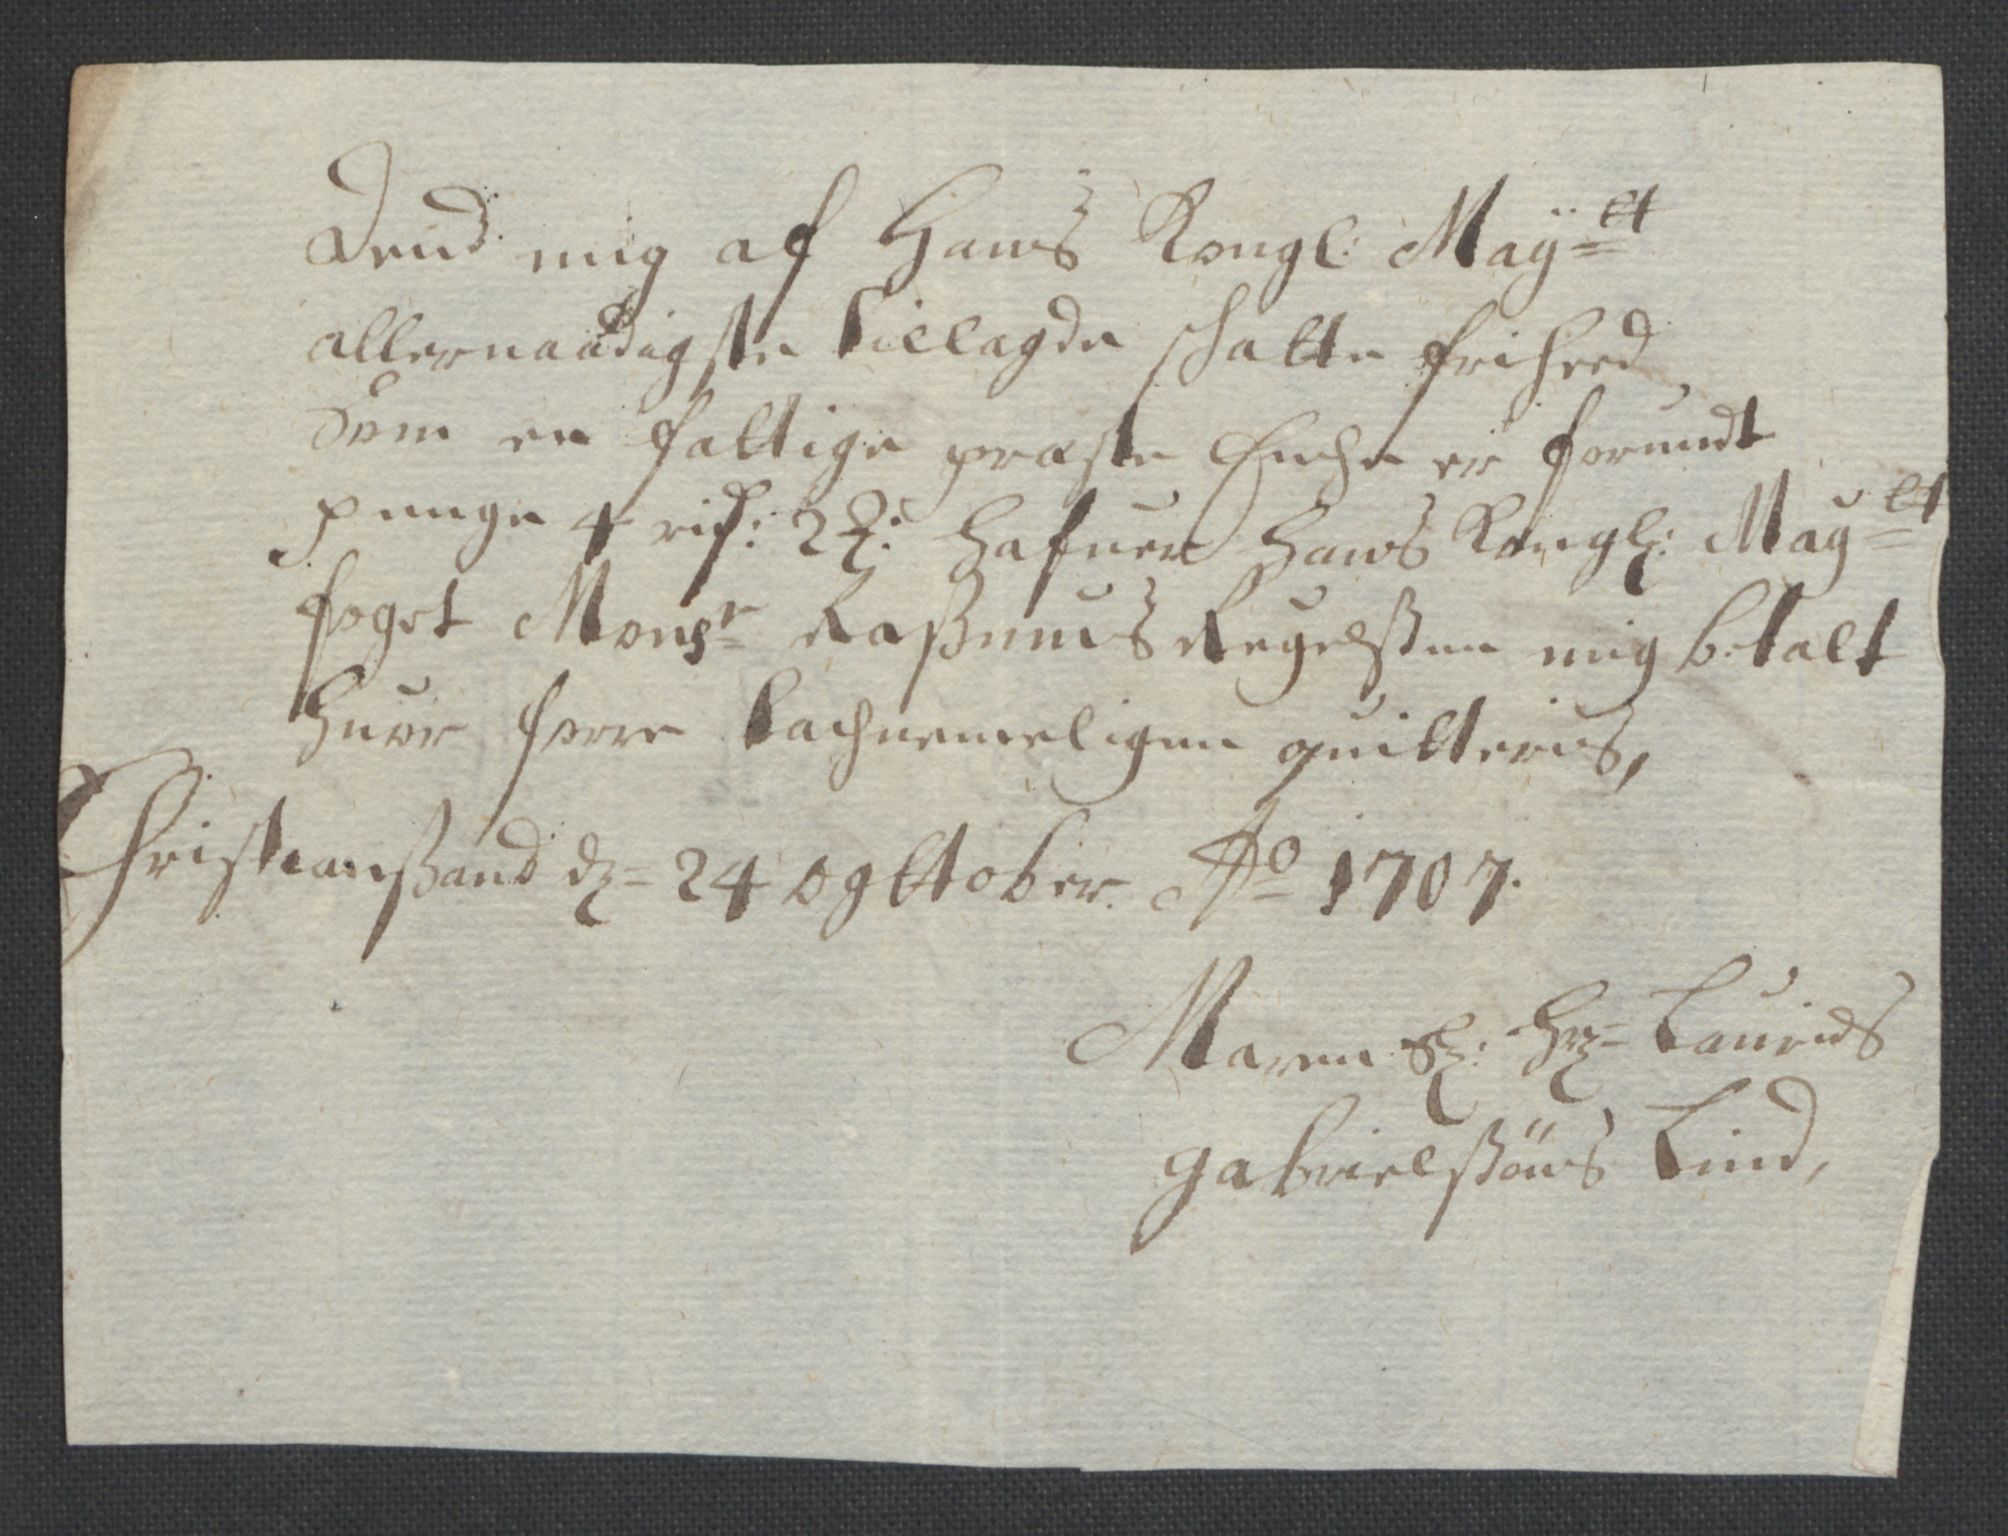 Dend mig af Hans Kongl: Maÿett
allernaadigste tillagde schatte friheed
Som en fattige præste Enche er forundt
penge 4 rid: 2 : Hafuer Hans Kongl: Maÿett
foget Monsr Rasmus Regelssen mig betalt
Huor forre tachnemeligen quitteris,
Christiansßand d: 24 ogttober Ao 1707.
Maren Sl: Hr: Laurids
gabrielssöns Lind,